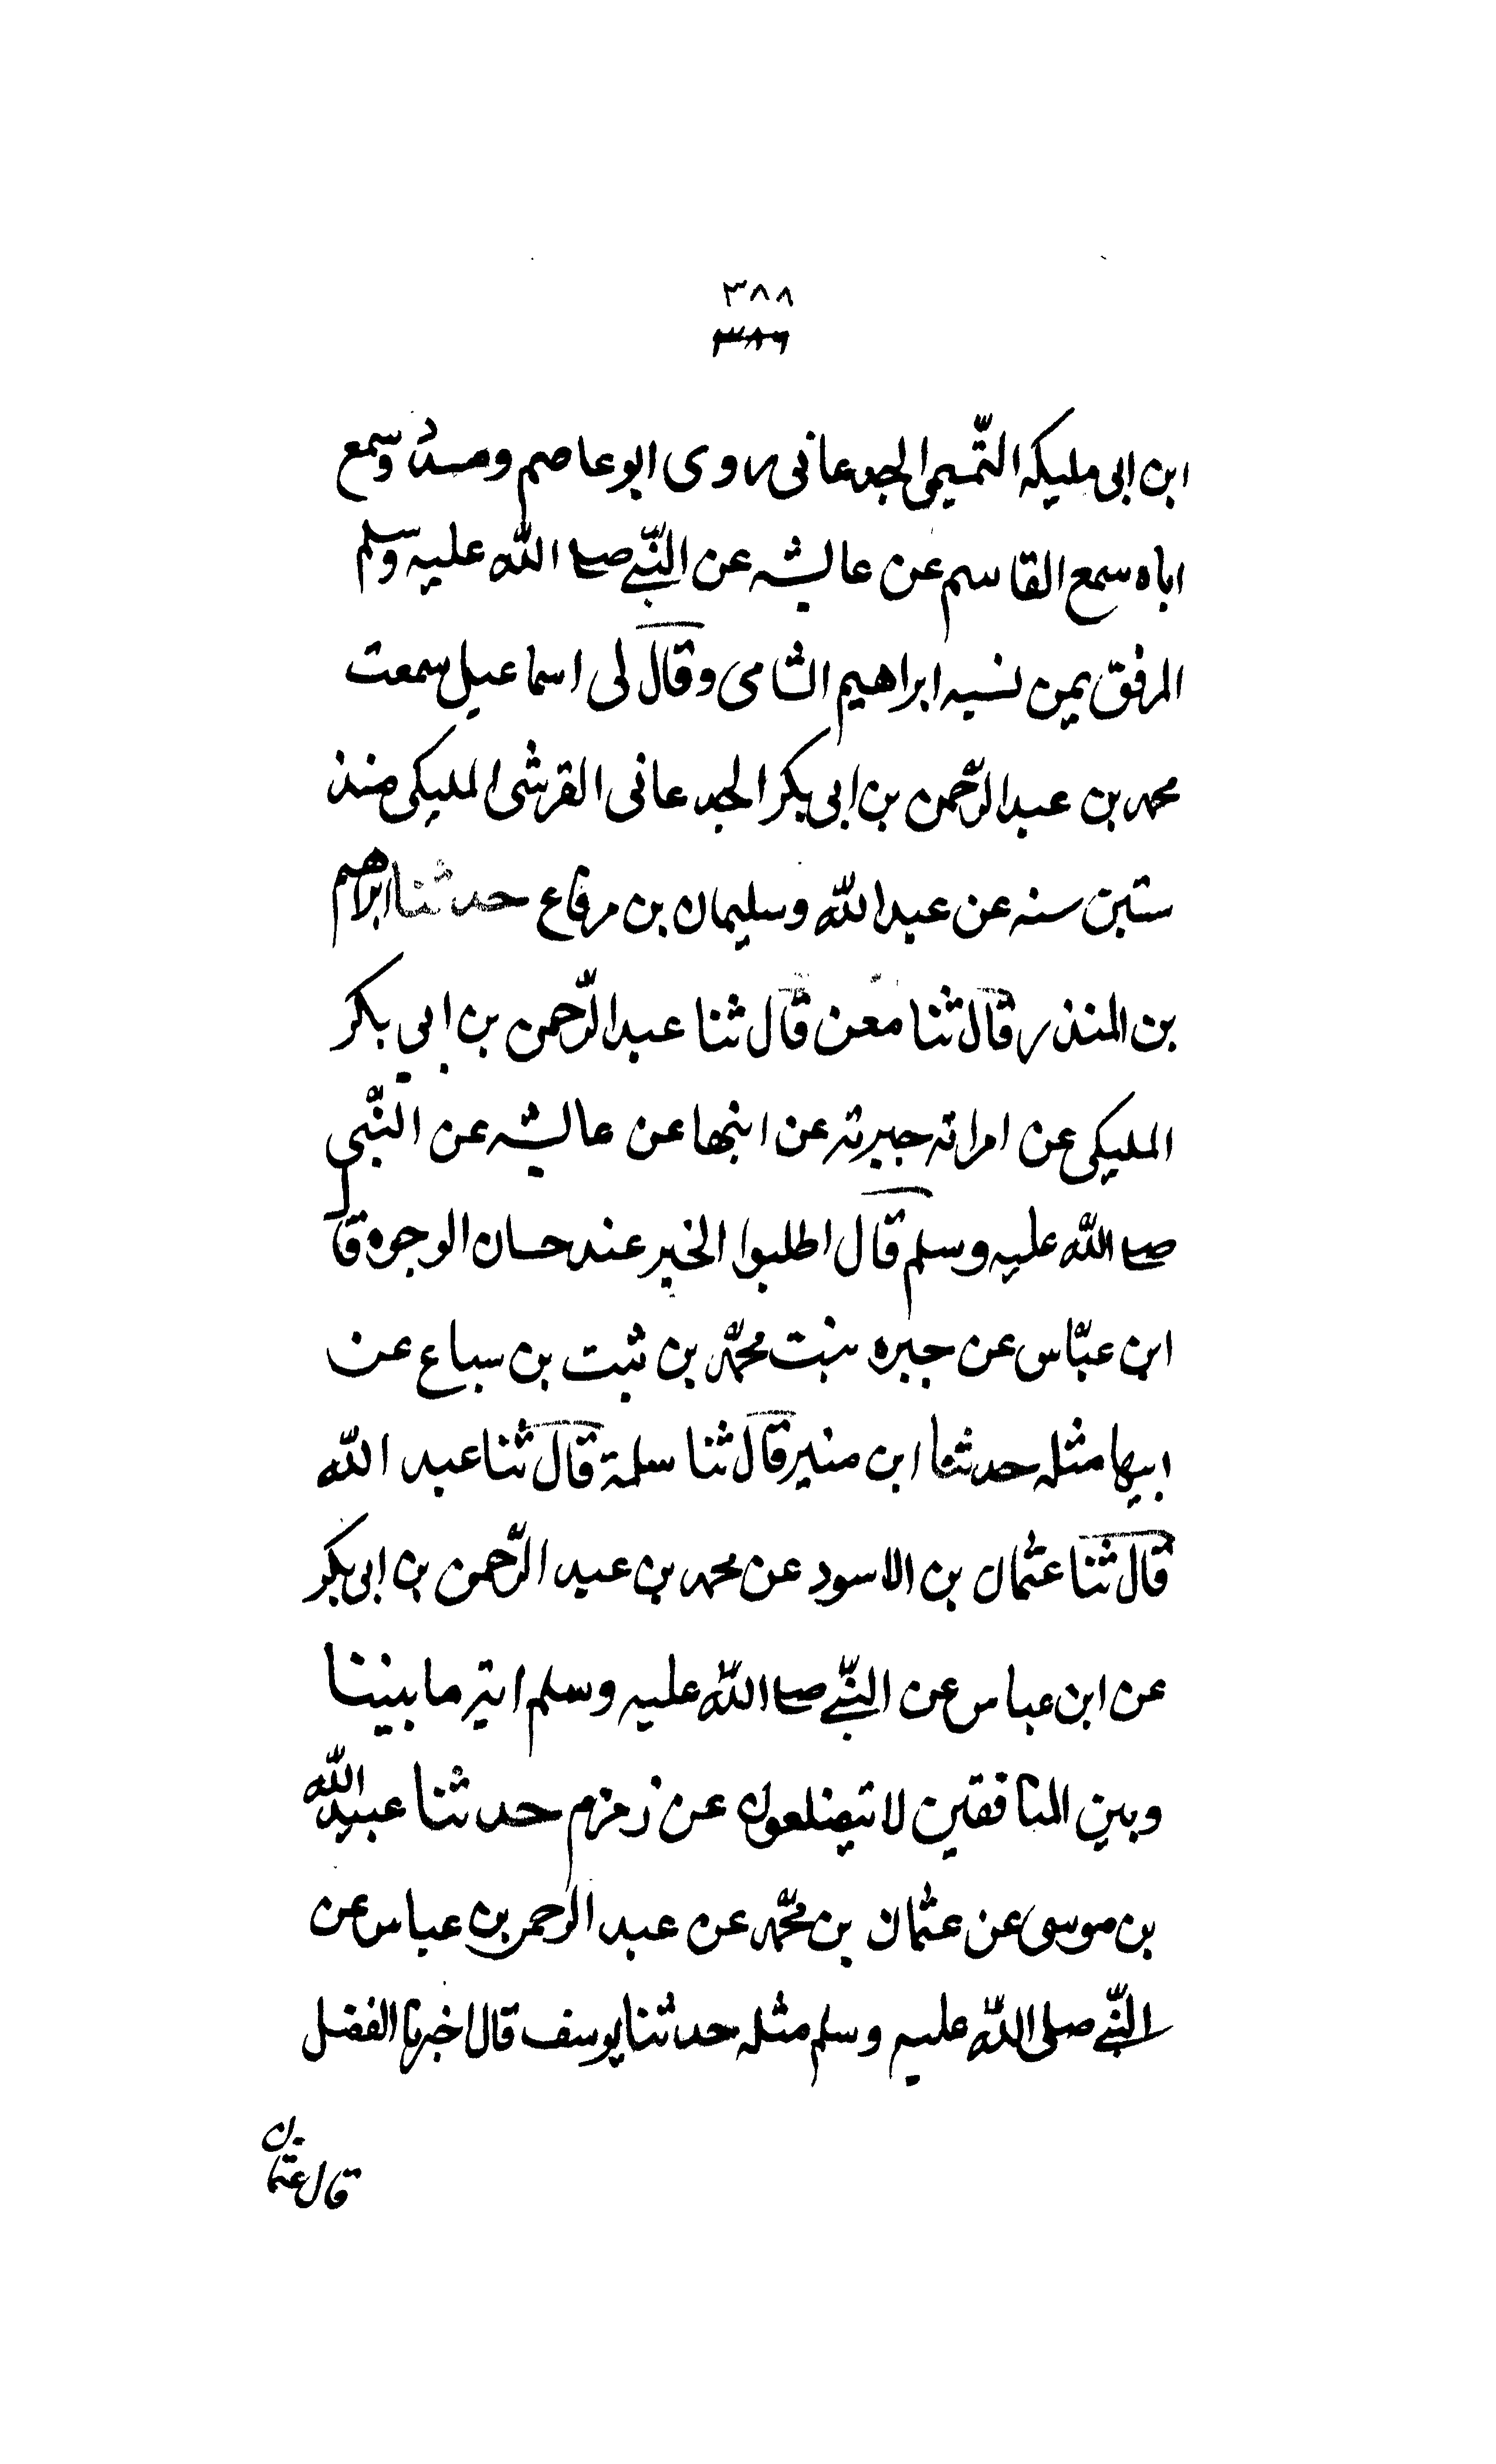 ٣٨٨
٣٨٦
ابن ابى مليكه التّميمى الجدعانى روى ابو عاصم ومسدد وسمع
اباه سمع القاسم عن عايشه عن النّبي صلى الله عليه وسلم
المرفق يمن نسبه ابراهيم الشامى وقال لى اسماعيل سمعت
محمد بن عبد الرّحمن بن ابى بكر الجدعانى القرشى المليكى منذ
ستين سنه عن عبد الله وسليمان بن مرقاع حدثنا ابراهيم
بن المنذر قال ثنا معن قال ثنا عبد الرّحمن بن ابي بكر
المليكى عن امراته جبرته عن ابيها عن عايشه عن النّبى
صلى الله عليه وسلم قال اطلبوا الخير عند حسان الوجوه قال
ابن عبّاس عن جبره بنت محمّد بن ثبت بن سباع عن
ابيها مثله حدثنا ابن منير قال ثنا سلمة قال ثنا عبد الله
قال ثنا عثمان بن الاسود عن محمد بن عبد الرّحمن بن ابى بكر
عن ابن عباس عن النّبي صلى الله عليه وسلم اية ما بيننا
وبين المنافقين لا يتضلعون عن زمزم حدثنا عبيد الله
بن موسى عن عثمان بن محمّد عن عبد الرحمن بن عباس عن
النّبي صلى الله عليه وسلم مثله حدثنا يوسف قال اخبرنا الفضل
قال عثمان